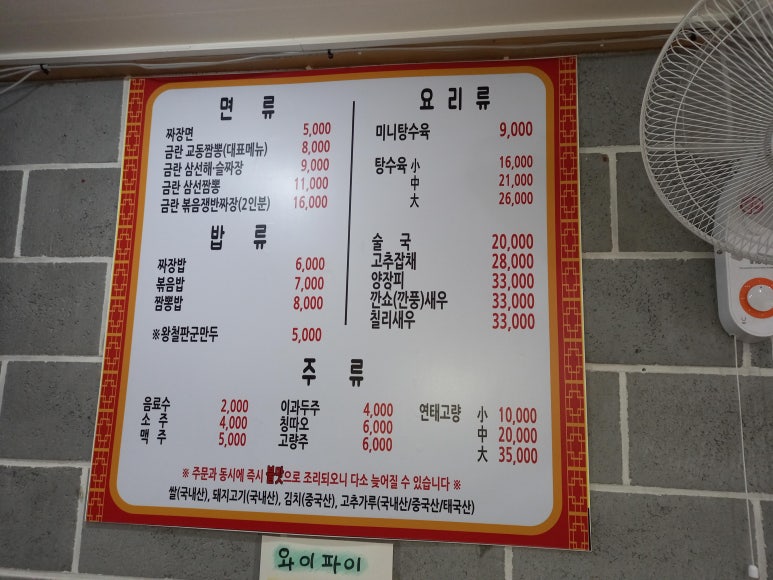 면 류
짜장면 5,000
금란 교동짬뽕(대표메뉴) 8,000
금란 삼선해·슬짜장 9,000
금란 삼선짬뽕 11,000
금란 볶음쟁반짜장(2인분) 16,000
밥 류
짜장밥 6,000
볶음밥 7,000
짬뽕밥 8,000
※왕철판군만두 5,000
요 리 류
미니탕수육 9,000
탕수육 小 16,000
中 21,000
大 26,000
술 국 20,000
고추잡채 28,000
양장피 33,000
깐쇼(깐풍)새우 33,000
칠리새우 33,000
주 류
음료수 2,000
소 주 4,000
맥 주 5,000
이과두주 4,000
칭따오 6,000
고량주 6,000
연태고량 小 10,000
中 20,000
大 35,000
※ 주문과 동시에 즉시 불맛으로 조리되오니 다소 늦어질 수 있습니다 ※
쌀(국내산), 돼지고기(국내산), 김치(중국산), 고추가루(국내산/중국산/태국산)
와이파이